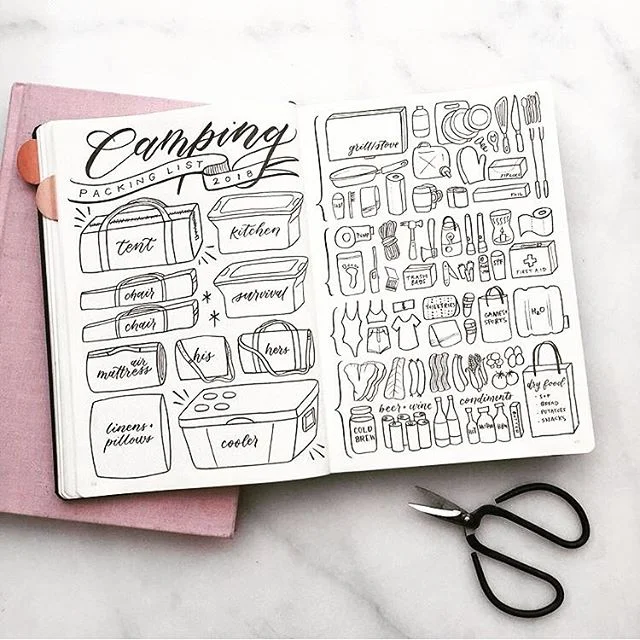 Camping
PACKING LIST
2018
tent
kitchen
chair
chair
survival
air
mattress
his
hers
linens +
pillows
cooler
grill/stove
FOIL
PUMP
TRASH
BAGS
FIRST AID
TOILETRIES
GAMES +
SPORTS
H2O
beer + wine
condiments
COLD
BREW
dry food
- S+P
- BREAD
- POTATOES
- SNACKS